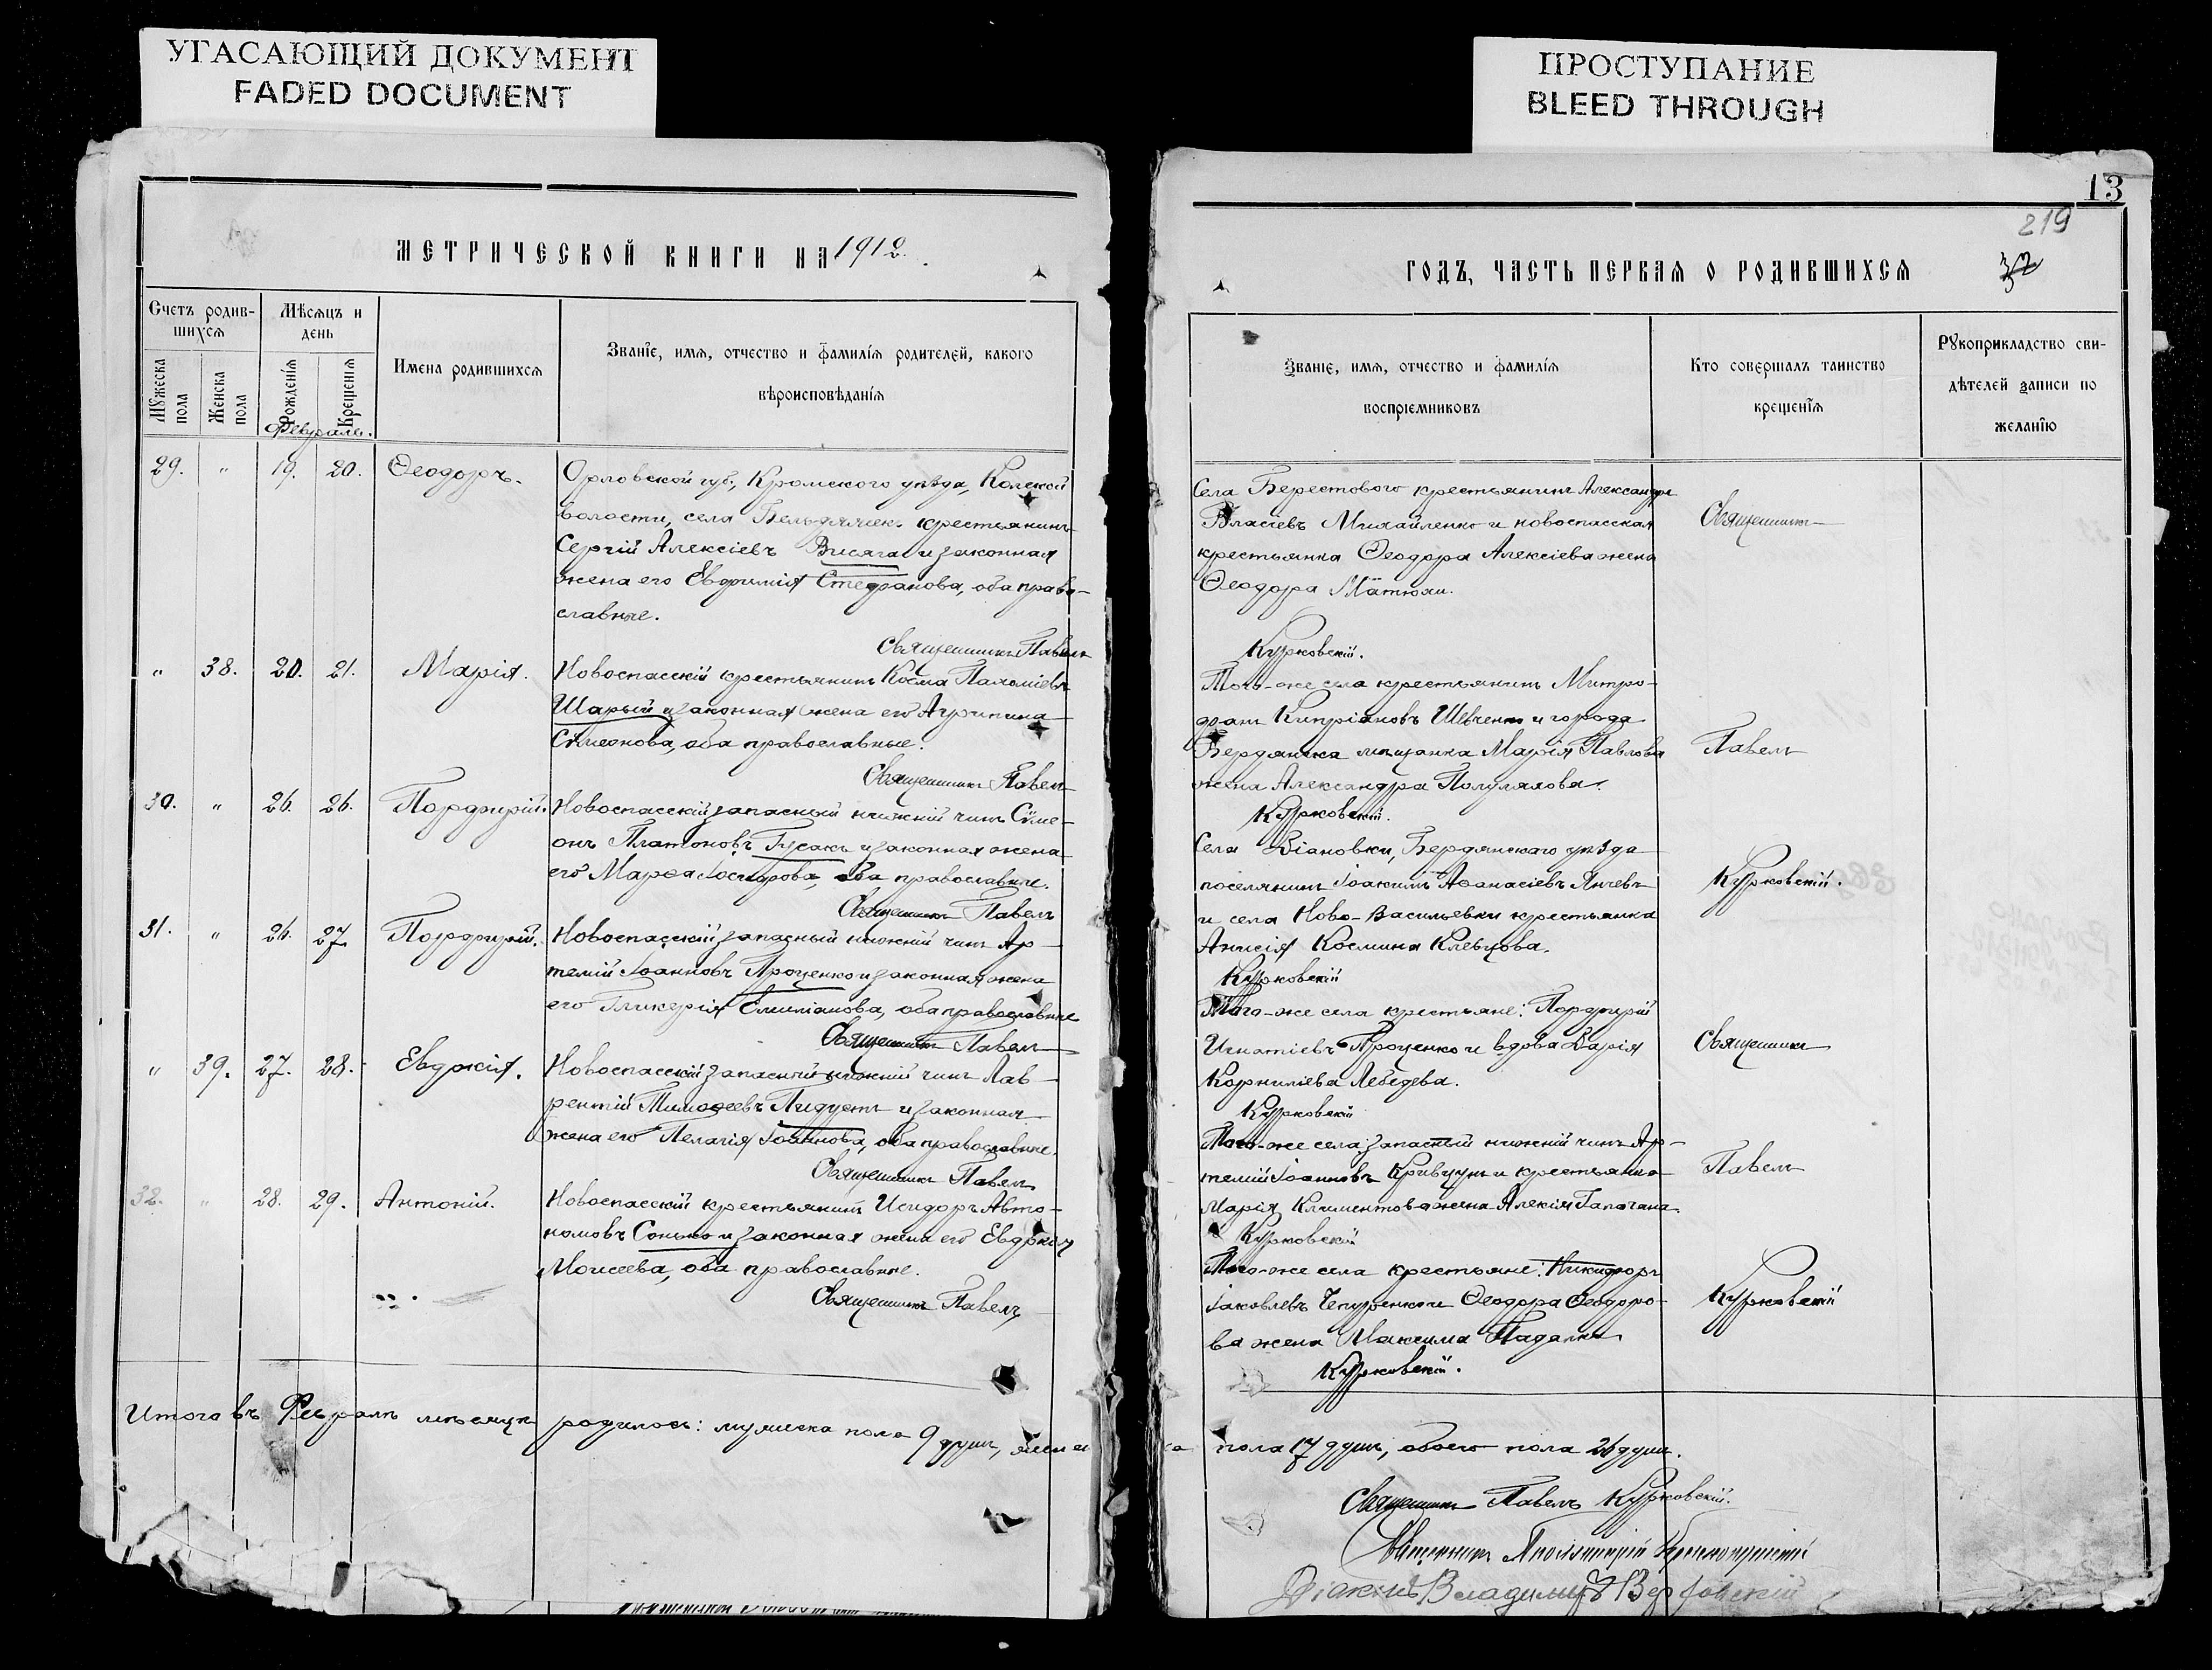 УГАСАЮЩИЙ ДОКУМЕНТ
FADED DOCUMENT
ПРОСТУПАНИЕ
BLEED THROUGH
13
219
МЕТРИЧЕСКОЙ КНИГИ НА 1912.
ГОДЪ, ЧАСТЬ ПЕРВАЯ О РОДИВШИХСЯ
Счетъ родив-
шихся
Мѣсяцъ и
день
Мужеска пола
Женска пола
Рожденія
Крещенія
Имена родившихся
Званіе, имя, отчество и фамилія родителей, какого
вѣроисповѣданія
Званіе, имя, отчество и фамилія
воспріемниковъ
Кто совершалъ таинство
крещенія
Рукоприкладство сви-
дѣтелей записи по
желанію
Февраль.
29. " 19. 20. Ѳеодоръ.
Орловской губ., Кромского уѣзда,
волости, села крестьянинъ
Сергій Алексіевъ Висягa и законная
жена его Евфимія Стефанова, оба право-
славные.
Священникъ Павелъ
Села Берестового крестьянинъ Александръ
Власіевъ Михайленко и новоспасская
крестьянка Ѳеодора Алексіева жена
Ѳеодора Матюхи.
Курковскій.
Священникъ
" 38. 20. 21. Марія.
Новоспасскій крестьянинъ Косма Пахоміевъ
Шарый и законная жена его Агрипина
Сѵмеонова, оба православные.
Священникъ Павелъ
Того-же села крестьянинъ Митро-
фанъ Кипріановъ Шевченко и города
Бердянска мѣщанка Марія Павлова
жена Александра Полуляхова.
Курковскій.
Павелъ
30. " 26. 26. Порфирій.
Новоспасскій запасный нижній чинъ Сѵме-
онъ Платоновъ Гусакъ и законная жена
его Марѳа оба православные.
Священникъ Павелъ
Села Діановки, Бердянскаго уѣзда
поселянинъ Іоакимъ Аѳанасіевъ Янчевъ
и села Ново-Васильевки крестьянка
Анисія Космина Клевцова.
Курковскій
Курковскій.
31. " 26. 27. Порфирій.
Новоспасскій запасный нижній чинъ Ар-
темій Іоанновъ Проценко и законная жена
его Гликерія Емиліанова, оба православные
Священникъ Павелъ
Того-же села крестьяне: Порфирій
Игнатіевъ Проценко и вдова Дарія
Корниліева Лебедева.
Курковскій
Священникъ
" 39. 27. 28. Евдокія.
Новоспасскій запасный нижній чинъ Лав-
рентій Тимоѳеевъ и законная
жена его Пелагія Іоаннова, оба православные.
Священникъ Павелъ
Того-же села запасный нижній чинъ Ар-
темій Іоанновъ Кривцунъ и крестьянка
Марія Климентова жена Алексія
Курковскій
Павелъ
32. " 28. 29. Антоній.
Новоспасскій крестьянинъ Исидоръ Авто-
номовъ Сонько и законная жена его Евдокія
Моисеева, оба православные.
Священникъ Павелъ
Того-же села крестьяне: Никифоръ
Іаковлевъ Чепуренко и Ѳеодора Ѳеодоро-
ва жена Максима Падалки.
Курковскій.
Курковскій
Итого въ Февралѣ мѣсяцѣ родилось: мужеска пола 9 душъ, женска пола 17 душъ, обоего пола 26 душъ.
Священникъ Павелъ Курковскій.
Священникъ
Діаконъ Владиміръ